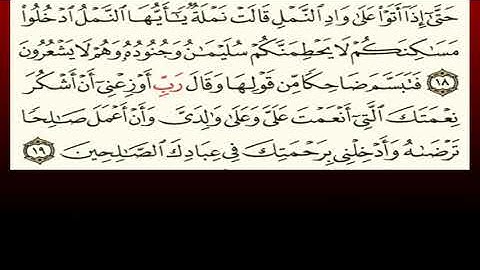 حَتَّىٰٓ إِذَآ أَتَوْا۟ عَلَىٰ وَادِ ٱلنَّمْلِ قَالَتْ نَمْلَةٌ يَٰٓأَيُّهَا ٱلنَّمْلُ ٱدْخُلُوا۟
مَسَٰكِنَكُمْ لَا يَحْطِمَنَّكُمْ سُلَيْمَٰنُ وَجُنُودُهُۥ وَهُمْ لَا يَشْعُرُونَ
١٨ فَتَبَسَّمَ ضَاحِكًا مِّن قَوْلِهَا وَقَالَ رَبِّ أَوْزِعْنِىٓ أَنْ أَشْكُرَ
نِعْمَتَكَ ٱلَّتِىٓ أَنْعَمْتَ عَلَىَّ وَعَلَىٰ وَٰلِدَىَّ وَأَنْ أَعْمَلَ صَٰلِحًا
تَرْضَىٰهُ وَأَدْخِلْنِى بِرَحْمَتِكَ فِى عِبَادِكَ ٱلصَّٰلِحِينَ ١٩